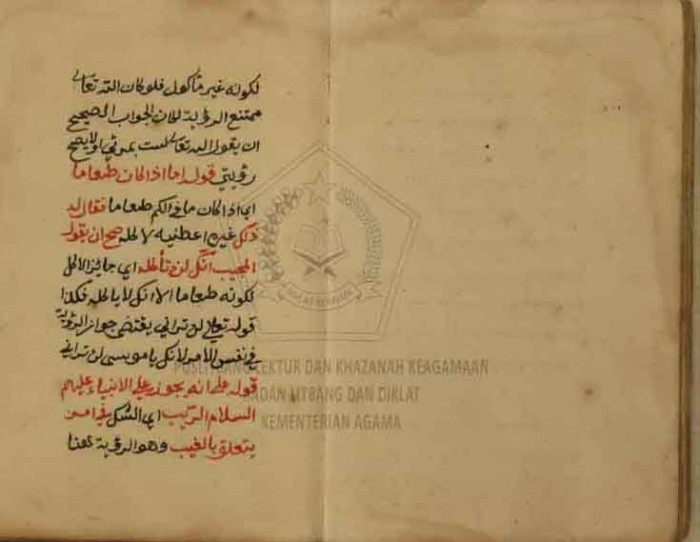 لكونه غير مأكول فلو كان الله تعالى
ممتنع الرؤية لكان الجواب الصحيح
ان يقول الله تعالى لست بمرئي او لا يصح
رؤيتي قوله اما اذا كان طعاما
اي اذا كان ما في الكم طعاما فقال له
ذلك غيره اعطنيه لاكله صح ان يقول
المجيب انك لن تأكله اي جايز الاكل
لكونه طعاما الا انك لا ياكله فكذا
قوله تعالى لن تراني يقتضي جواز الرؤية
في نفس الامر لانك يا موسى لن تراني
قوله على انه يجوز على الانبياء عليهم
السلام الريب اي الشك في امر
يتعلق بالغيب وهو الرؤية هنا
PUSLITBANG LEKTUR DAN KHAZANAH KEAGAMAAN
BADAN LITBANG DAN DIKLAT
KEMENTERIAN AGAMA